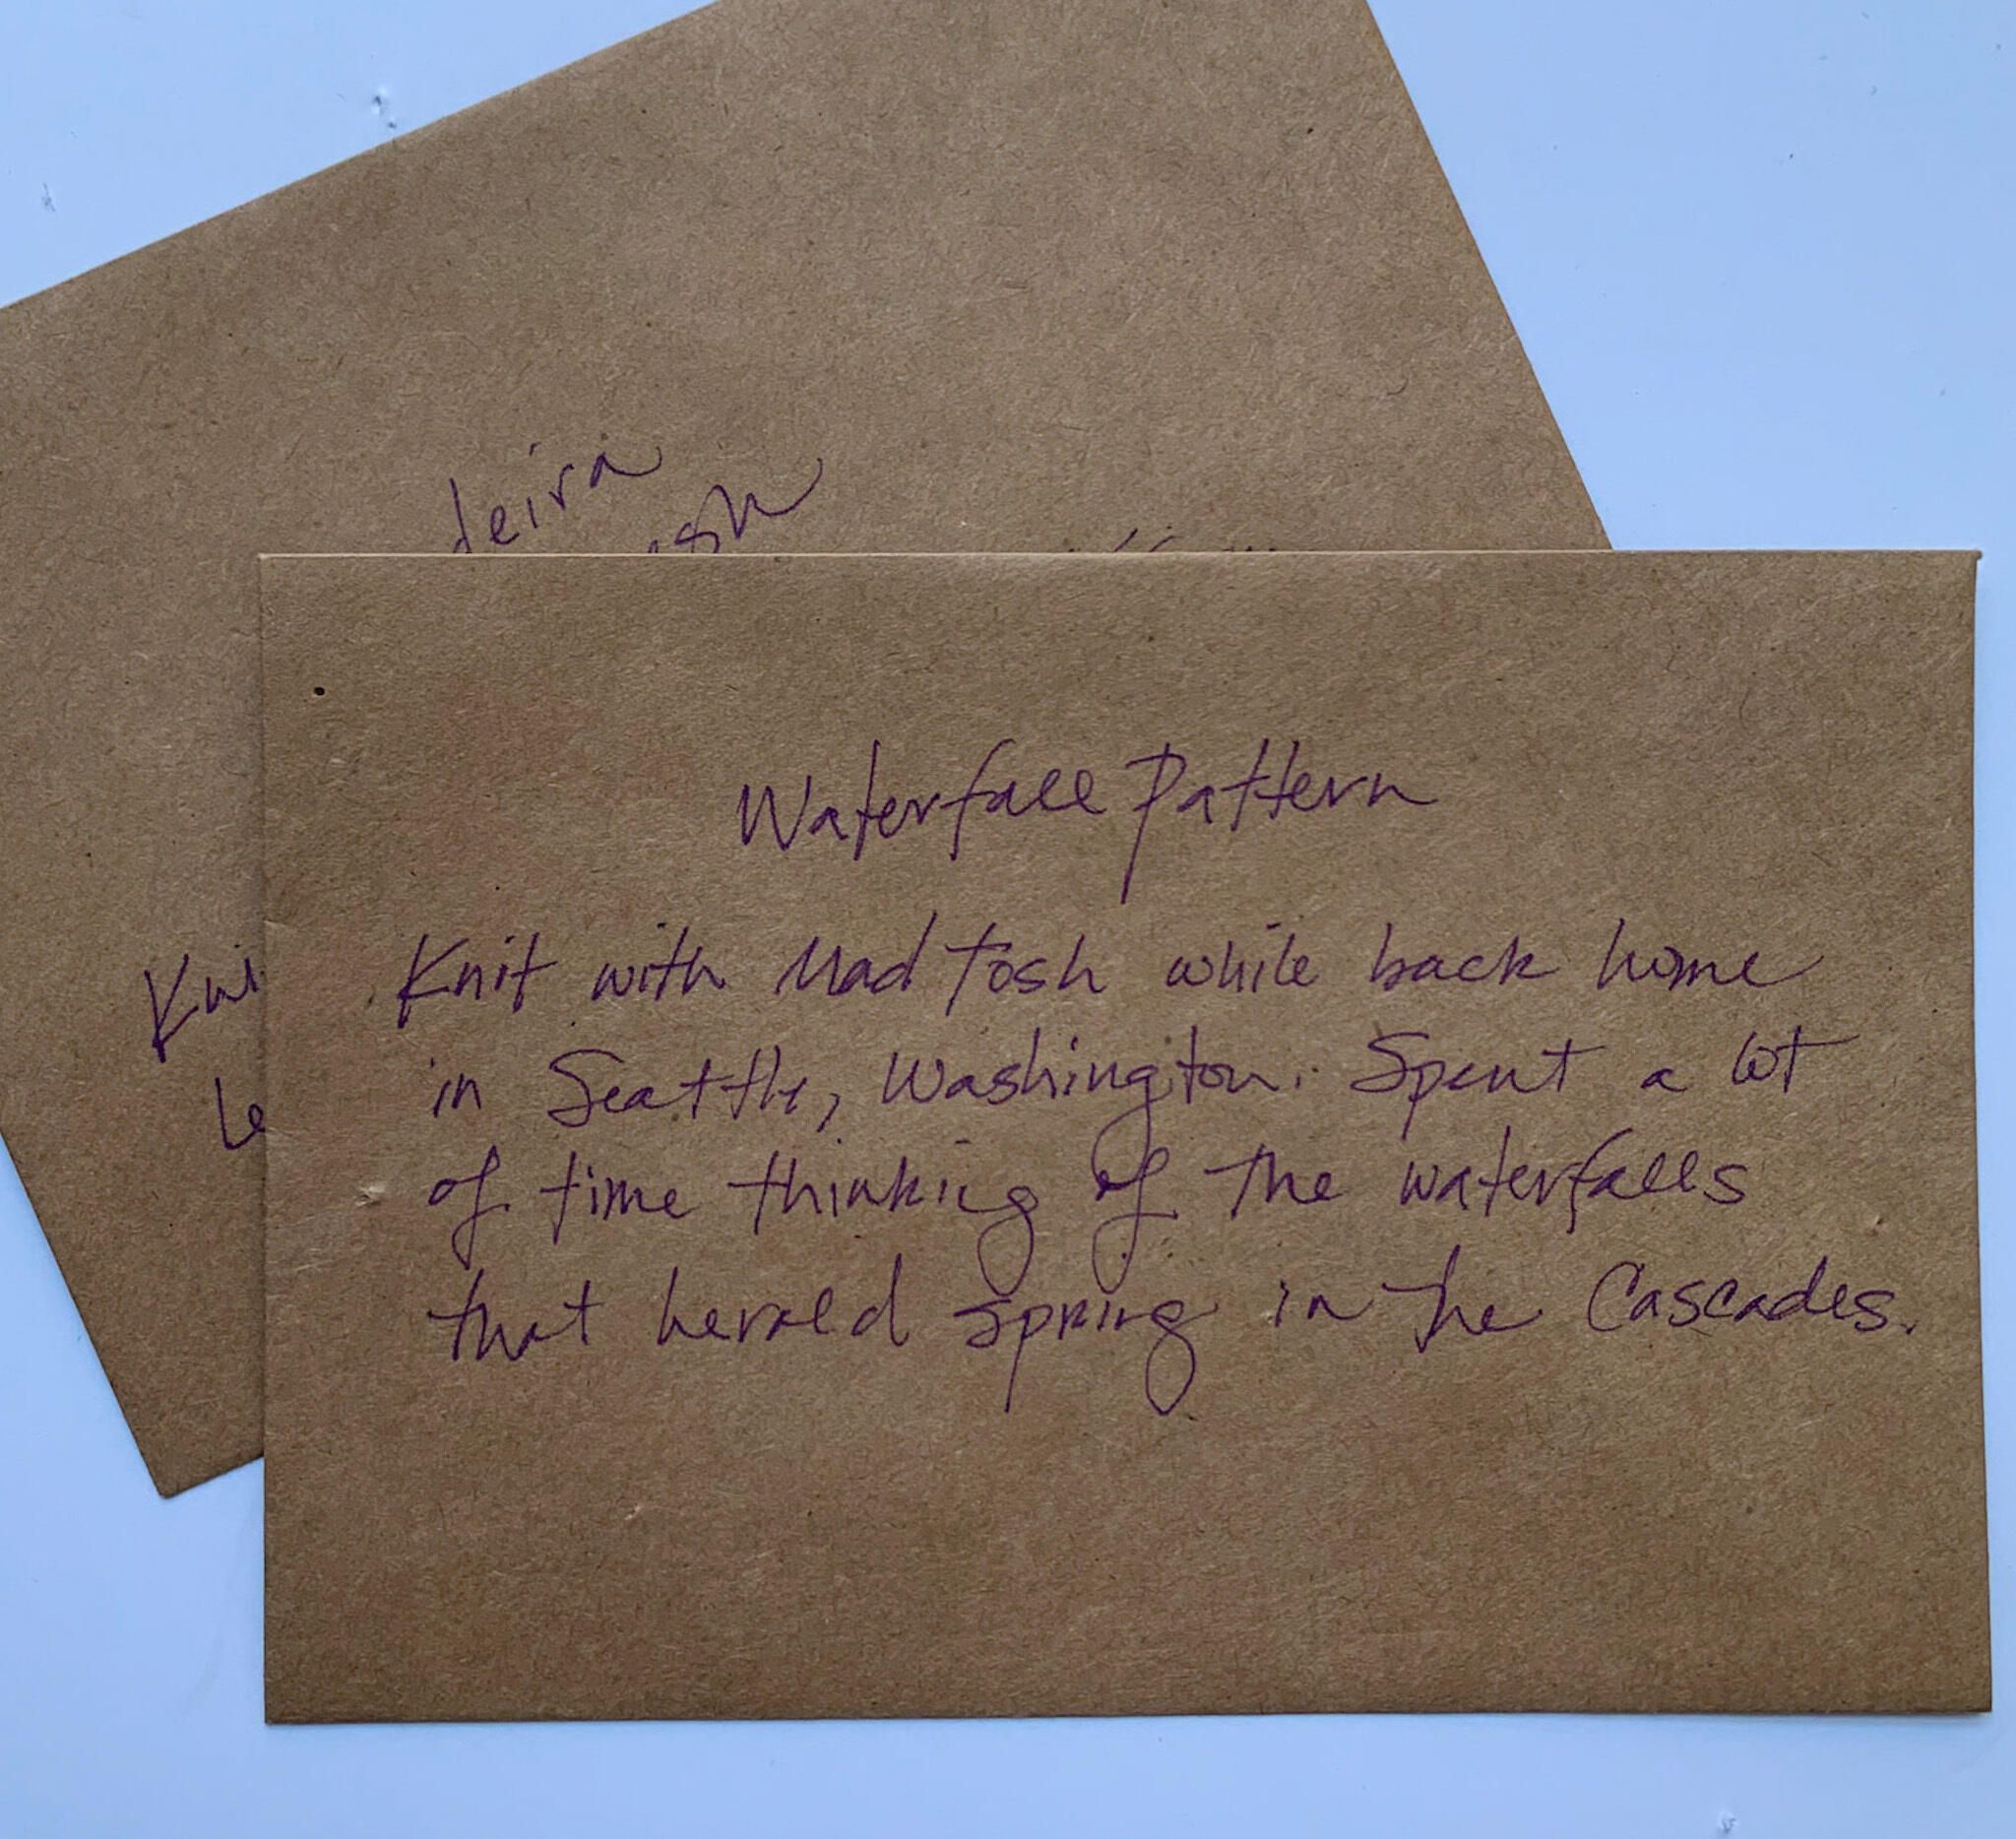 Waterfall Pattern
Knit with Mad Tosh while back home
in Seattle, Washington. Spent a lot
of time thinking of the waterfalls
that herald spring in the Cascades.